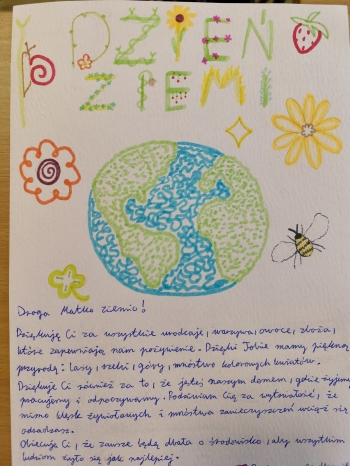 DZIEŃ
ZIEMI
Droga Matko Ziemio!
Dziękuję Ci za wszystkie urodzaje, warzywa, owoce, zboża,
które zapewniają nam pożywienie. Dzięki Tobie mamy piękną
przyrodę: lasy, rzeki, góry, mnóstwo kolorowych kwiatów.
Dziękuję Ci również za to, że jesteś naszym domem, gdzie żyjemy,
pracujemy i odpoczywamy. Podziwiam Cię za wytrwałość, że
mimo klęsk żywiołowych i mnóstwa zanieczyszczeń wciąż się
odradzasz.
Obiecuję Ci, że zawsze będę dbała o środowisko, aby wszystkim
ludziom żyło się jak najlepiej.